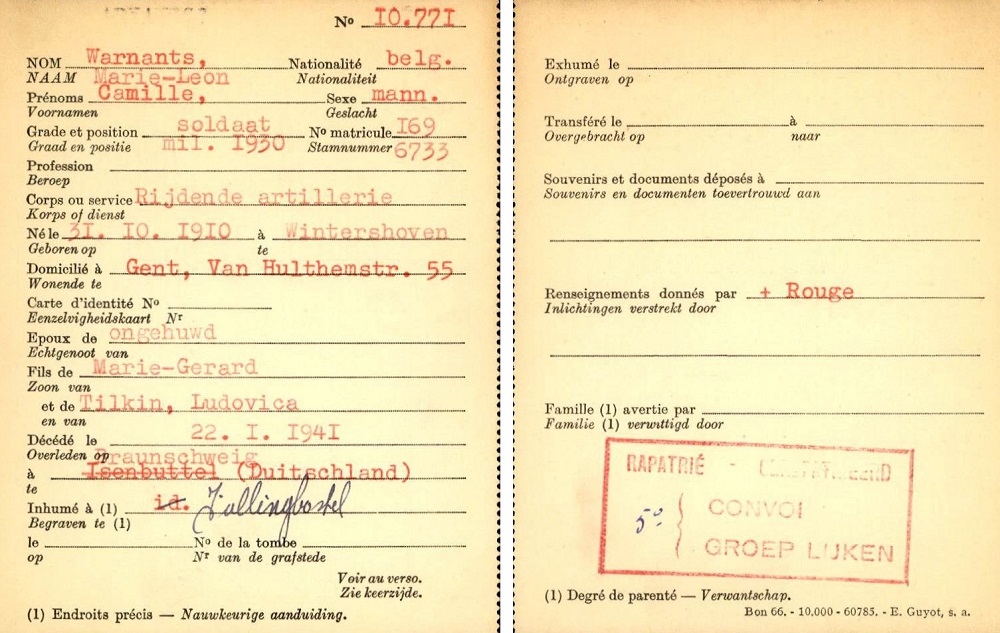 Nº 10.771
NOM Warnants, Nationalité belg.
NAAM Marie-Leon Nationaliteit
Prénoms Camille, Sexe mann.
Voornamen Geslacht
Grade et position soldaat Nº matricule 169
Graad en positie mil. 1930 Stamnummer 6733
Profession
Beroep
Corps ou service Rijdende artillerie
Korps of dienst
Né le 31. 10. 1910 à Wintershoven
Geboren op te
Domicilié à Gent, Van Hulthemstr. 55
Wonende te
Carte d'identité Nº
Eenzelvigheidskaart Nr
Epoux de ongehuwd
Echtgenoot van
Fils de Marie-Gerard
Zoon van
et de Tilkin, Ludovica
en van
Décédé le 22. I. 1941
Overleden op Braunschweig
à Isenbuttel (Duitschland)
te
Inhumé à (1) id. Fallingbostel
Begraven te (1)
le Nº de la tombe
op Nr van de grafstede
Voir au verso.
Zie keerzijde.
(1) Endroits précis — Nauwkeurige aanduiding.
Exhumé le
Ontgraven op
Transféré le à
Overgebracht op naar
Souvenirs et documents déposés à
Souvenirs en documenten toevertrouwd aan
Renseignements donnés par + Rouge
Inlichtingen verstrekt door
Famille (1) avertie par
Familie (1) verwittigd door
RAPATRIÉ -
5º } CONVOI
GROEP LIJKEN
(1) Degré de parenté — Verwantschap.
Bon 66. - 10,000 - 60785. - E. Guyot, s. a.